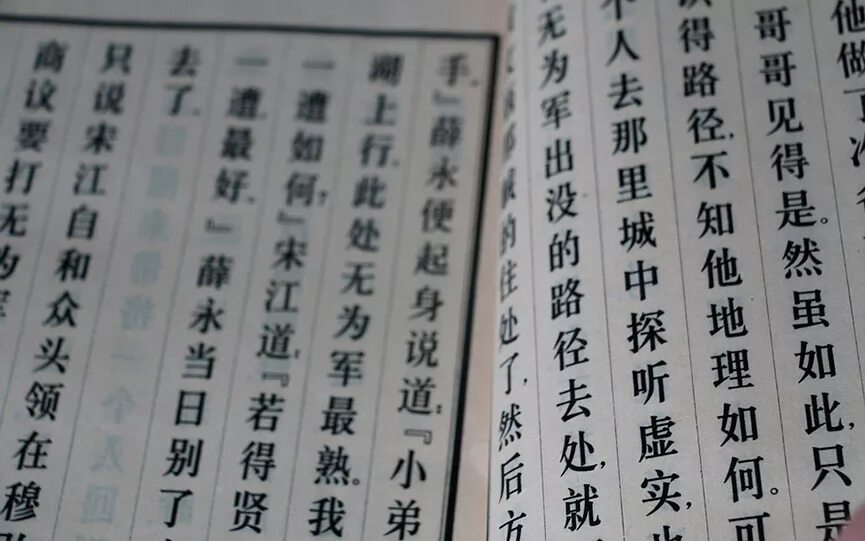 他做了
哥哥见得是。然虽如此,只是
识得路径,不知他地理如何。可
个人去那里城中探听虚实,也
无为军出没的路径去处,就
那贼的住处了,然后方
手。』薛永便起身说道:『小弟
湖上行,此处无为军最熟。我
一遭如何?』宋江道:『若得贤
一遭最好。』薛永当日别了
去了。
只说宋江自和众头领在穆
商议要打无为军